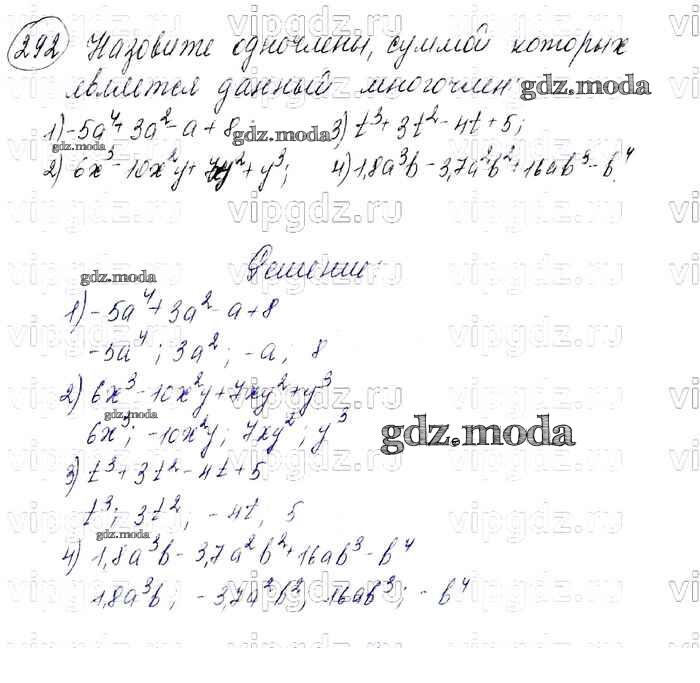 292 Назовите одночлены, суммой которых
является данный многочлен: gdz.moda
1) -5a⁴+3a²-a+8 gdz.moda 3) t³+3t²-4t+5;
gdz.moda
2) 6x³-10x²y+7xy²+y³; 4) 1,8a³b-3,7a²b²+16ab³-b⁴
Решение:
gdz.moda
1) -5a⁴+3a²-a+8
-5a⁴; 3a²; -a; 8
2) 6x³-10x²y+7xy²+y³
gdz.moda
6x³; -10x²y; 7xy²; y³
gdz.moda
3) t³+3t²-4t+5
t³; 3t²; -4t; 5
gdz.moda
4) 1,8a³b-3,7a²b²+16ab³-b⁴
1,8a³b; -3,7a²b²; 16ab³; -b⁴
vipgdz.ru